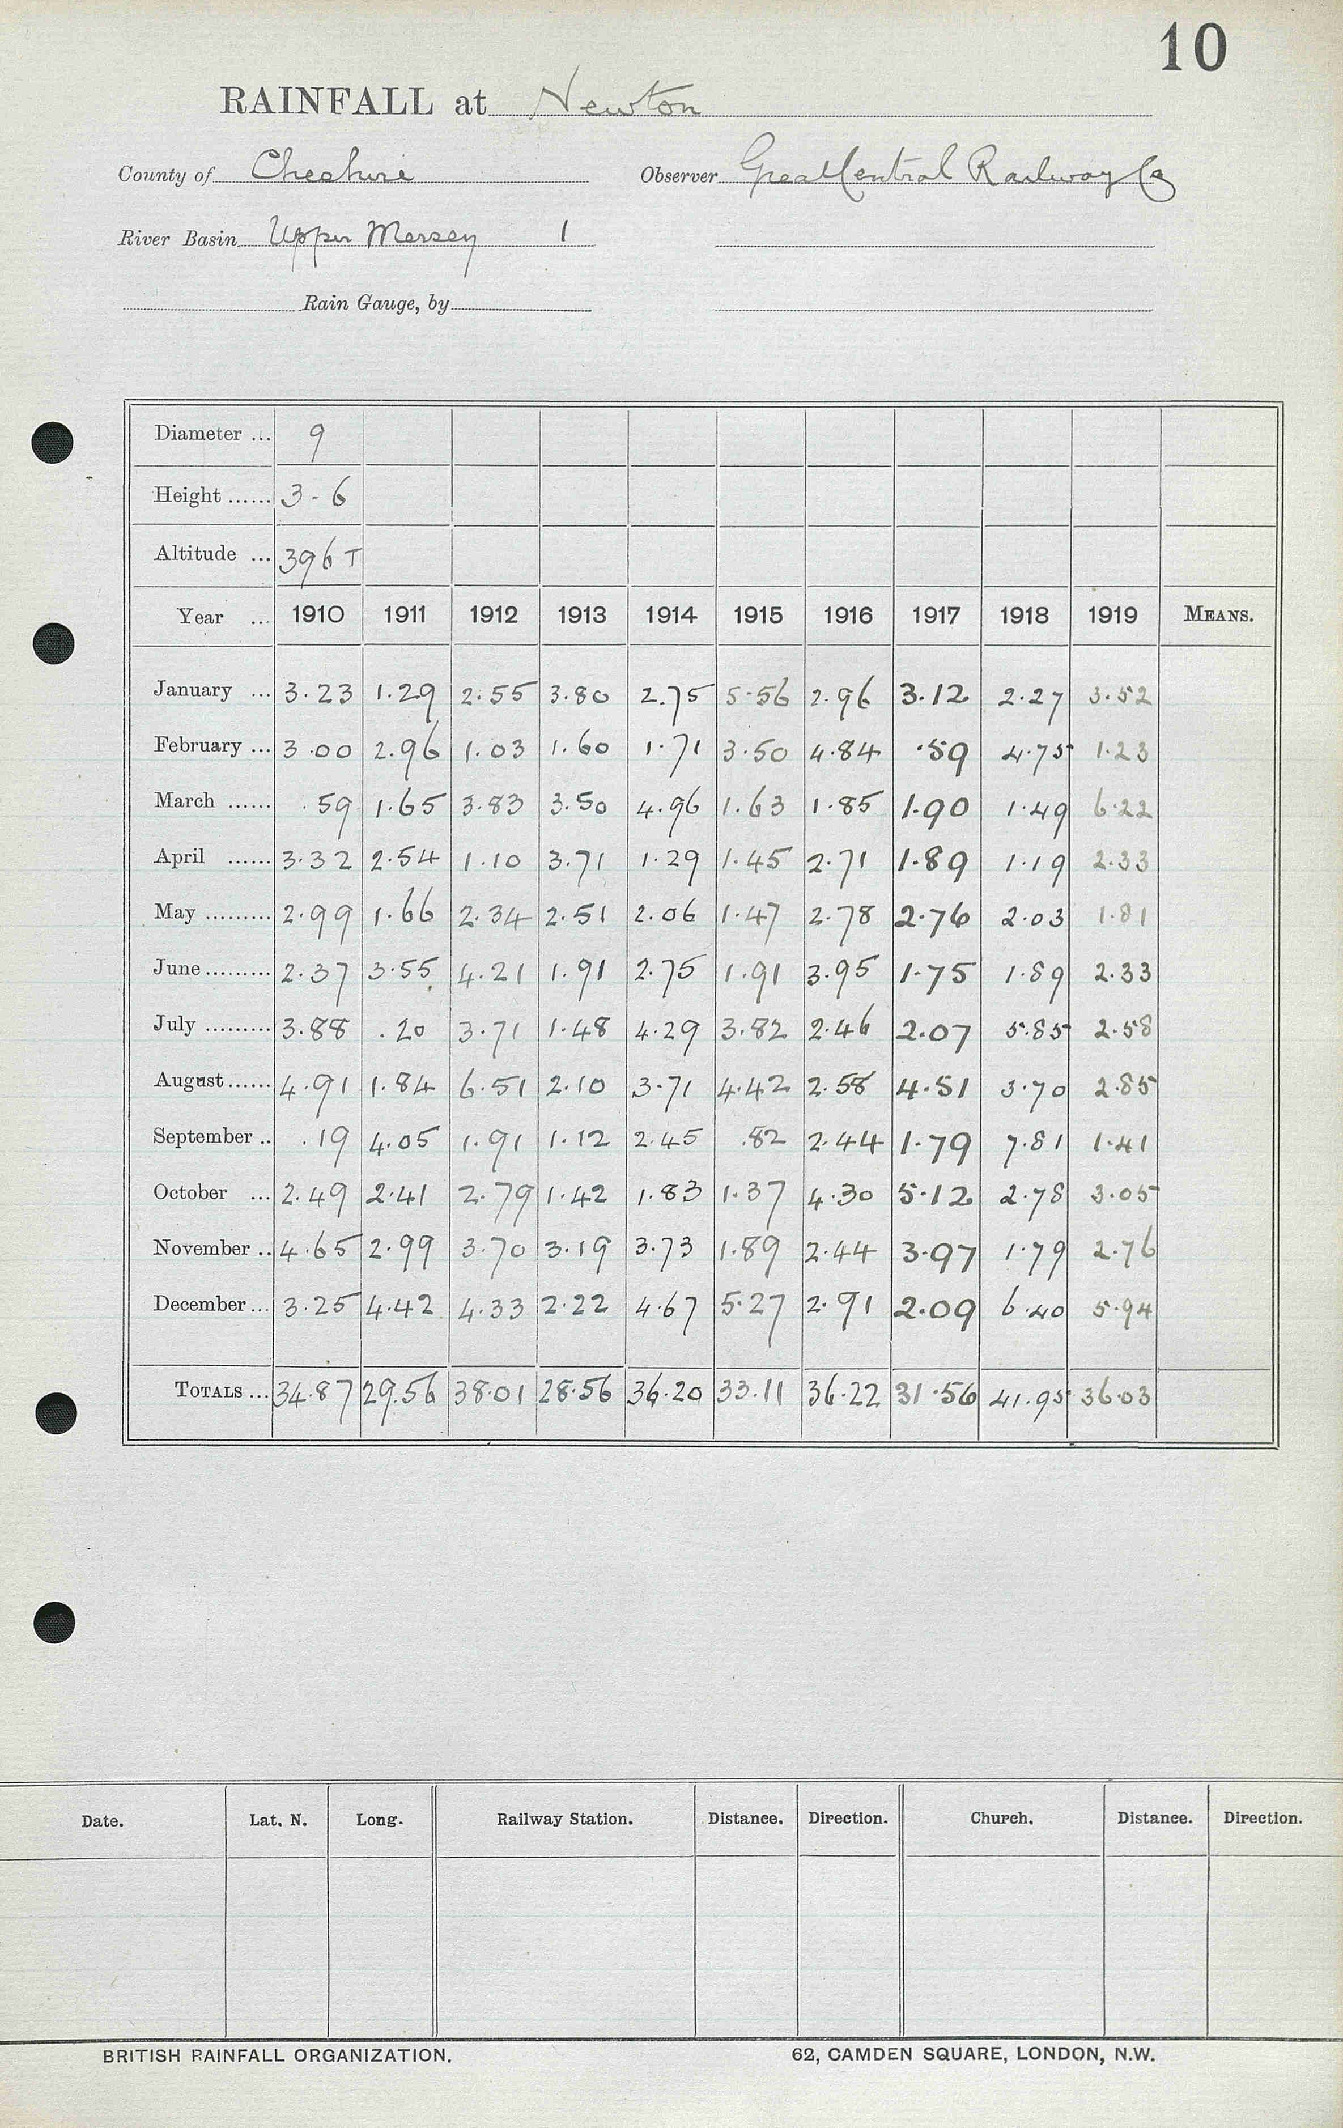 10
RAINFALL at Newton
County of Cheshire Observer Great Central Railway Co
River Basin Upper Mersey 1
Rain Gauge, by
Diameter ... 9
Height ...... 3-6
Altitude ... 396 T
Year ... 1910 1911 1912 1913 1914 1915 1916 1917 1918 1919 MEANS.
January ... 3.23 1.29 2.55 3.80 2.75 5.56 2.96 3.12 2.27 3.52
February ... 3.00 2.96 1.03 1.60 1.71 3.50 4.84 .59 4.75 1.23
March ...... .59 1.65 3.83 3.50 4.96 1.63 1.85 1.90 1.49 6.22
April ...... 3.32 2.54 1.10 3.71 1.29 1.45 2.71 1.89 1.19 2.33
May ......... 2.99 1.66 2.34 2.51 2.06 1.47 2.78 2.76 2.03 1.81
June ......... 2.37 3.55 4.21 1.91 2.75 1.91 3.95 1.75 1.89 2.33
July ......... 3.88 .20 3.71 1.48 4.29 3.82 2.46 2.07 5.85 2.58
August ...... 4.91 1.84 6.51 2.10 3.71 4.42 2.58 4.51 3.70 2.85
September .. .19 4.05 1.91 1.12 2.45 .82 2.44 1.79 7.81 1.41
October ... 2.49 2.41 2.79 1.42 1.83 1.37 4.30 5.12 2.78 3.05
November .. 4.65 2.99 3.70 3.19 3.73 1.89 2.44 3.97 1.79 2.76
December ... 3.25 4.42 4.33 2.22 4.67 5.27 2.91 2.09 6.40 5.94
TOTALS ... 34.87 29.56 38.01 28.56 36.20 33.11 36.22 31.56 41.95 36.03
Date. Lat. N. Long. Railway Station. Distance. Direction. Church. Distance. Direction.
BRITISH RAINFALL ORGANIZATION. 62, CAMDEN SQUARE, LONDON, N.W.